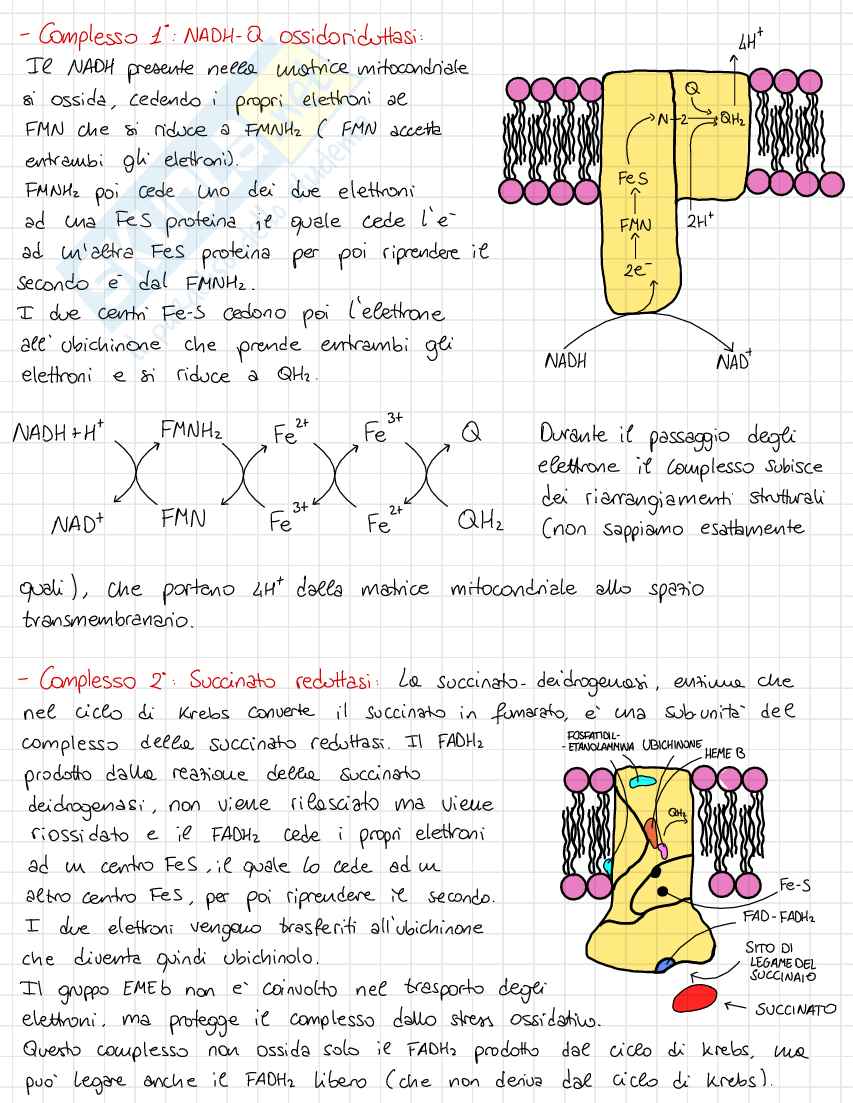 - Complesso 1°: NADH-Q ossidoriduttasi:
Il NADH presente nella matrice mitocondriale
si ossida, cedendo i propri elettroni al
FMN che si riduce a FMNH₂ ( FMN accetta
entrambi gli elettroni).
FMNH₂ poi cede uno dei due elettroni
ad una FeS proteina il quale cede l'e⁻
ad un'altra FeS proteina per poi riprendere il
secondo e⁻ dal FMNH₂.
I due centri Fe-S cedono poi l'elettrone
all'ubichinone che prende entrambi gli
elettroni e si riduce a QH₂.
4H⁺
Q
N-2
QH₂
FeS
FMN
2H⁺
2e⁻
NADH
NAD⁺
NADH+H⁺ FMNH₂ Fe²⁺ Fe³⁺ Q
NAD⁺ FMN Fe³⁺ Fe²⁺ QH₂
Durante il passaggio degli
elettrone il complesso subisce
dei riarrangiamenti strutturali
(non sappiamo esattamente
quali), che portano 4H⁺ dalla matrice mitocondriale allo spazio
transmembranario.
- Complesso 2°: Succinato reduttasi: La succinato-deidrogenasi, enzima che
nel ciclo di Krebs converte il succinato in fumarato, è una subunità del
complesso della succinato reduttasi. Il FADH₂
prodotto dalla reazione della succinato
deidrogenasi, non viene rilasciato ma viene
riossidato e il FADH₂ cede i propri elettroni
ad un centro FeS, il quale lo cede ad un
altro centro FeS, per poi riprendere il secondo.
I due elettroni vengono trasferiti all'ubichinone
che diventa quindi ubichinolo.
Il gruppo EMEb non è coinvolto nel trasporto degli
elettroni, ma protegge il complesso dallo stress ossidativo.
Questo complesso non ossida solo il FADH₂ prodotto dal ciclo di Krebs, ma
può legare anche il FADH₂ libero (che non deriva dal ciclo di Krebs).
FOSFATIDIL-
-ETANOLAMMINA
UBICHINONE
HEME B
QH₂
Fe-S
FAD-FADH₂
SITO DI
LEGAME DEL
SUCCINATO
SUCCINATO